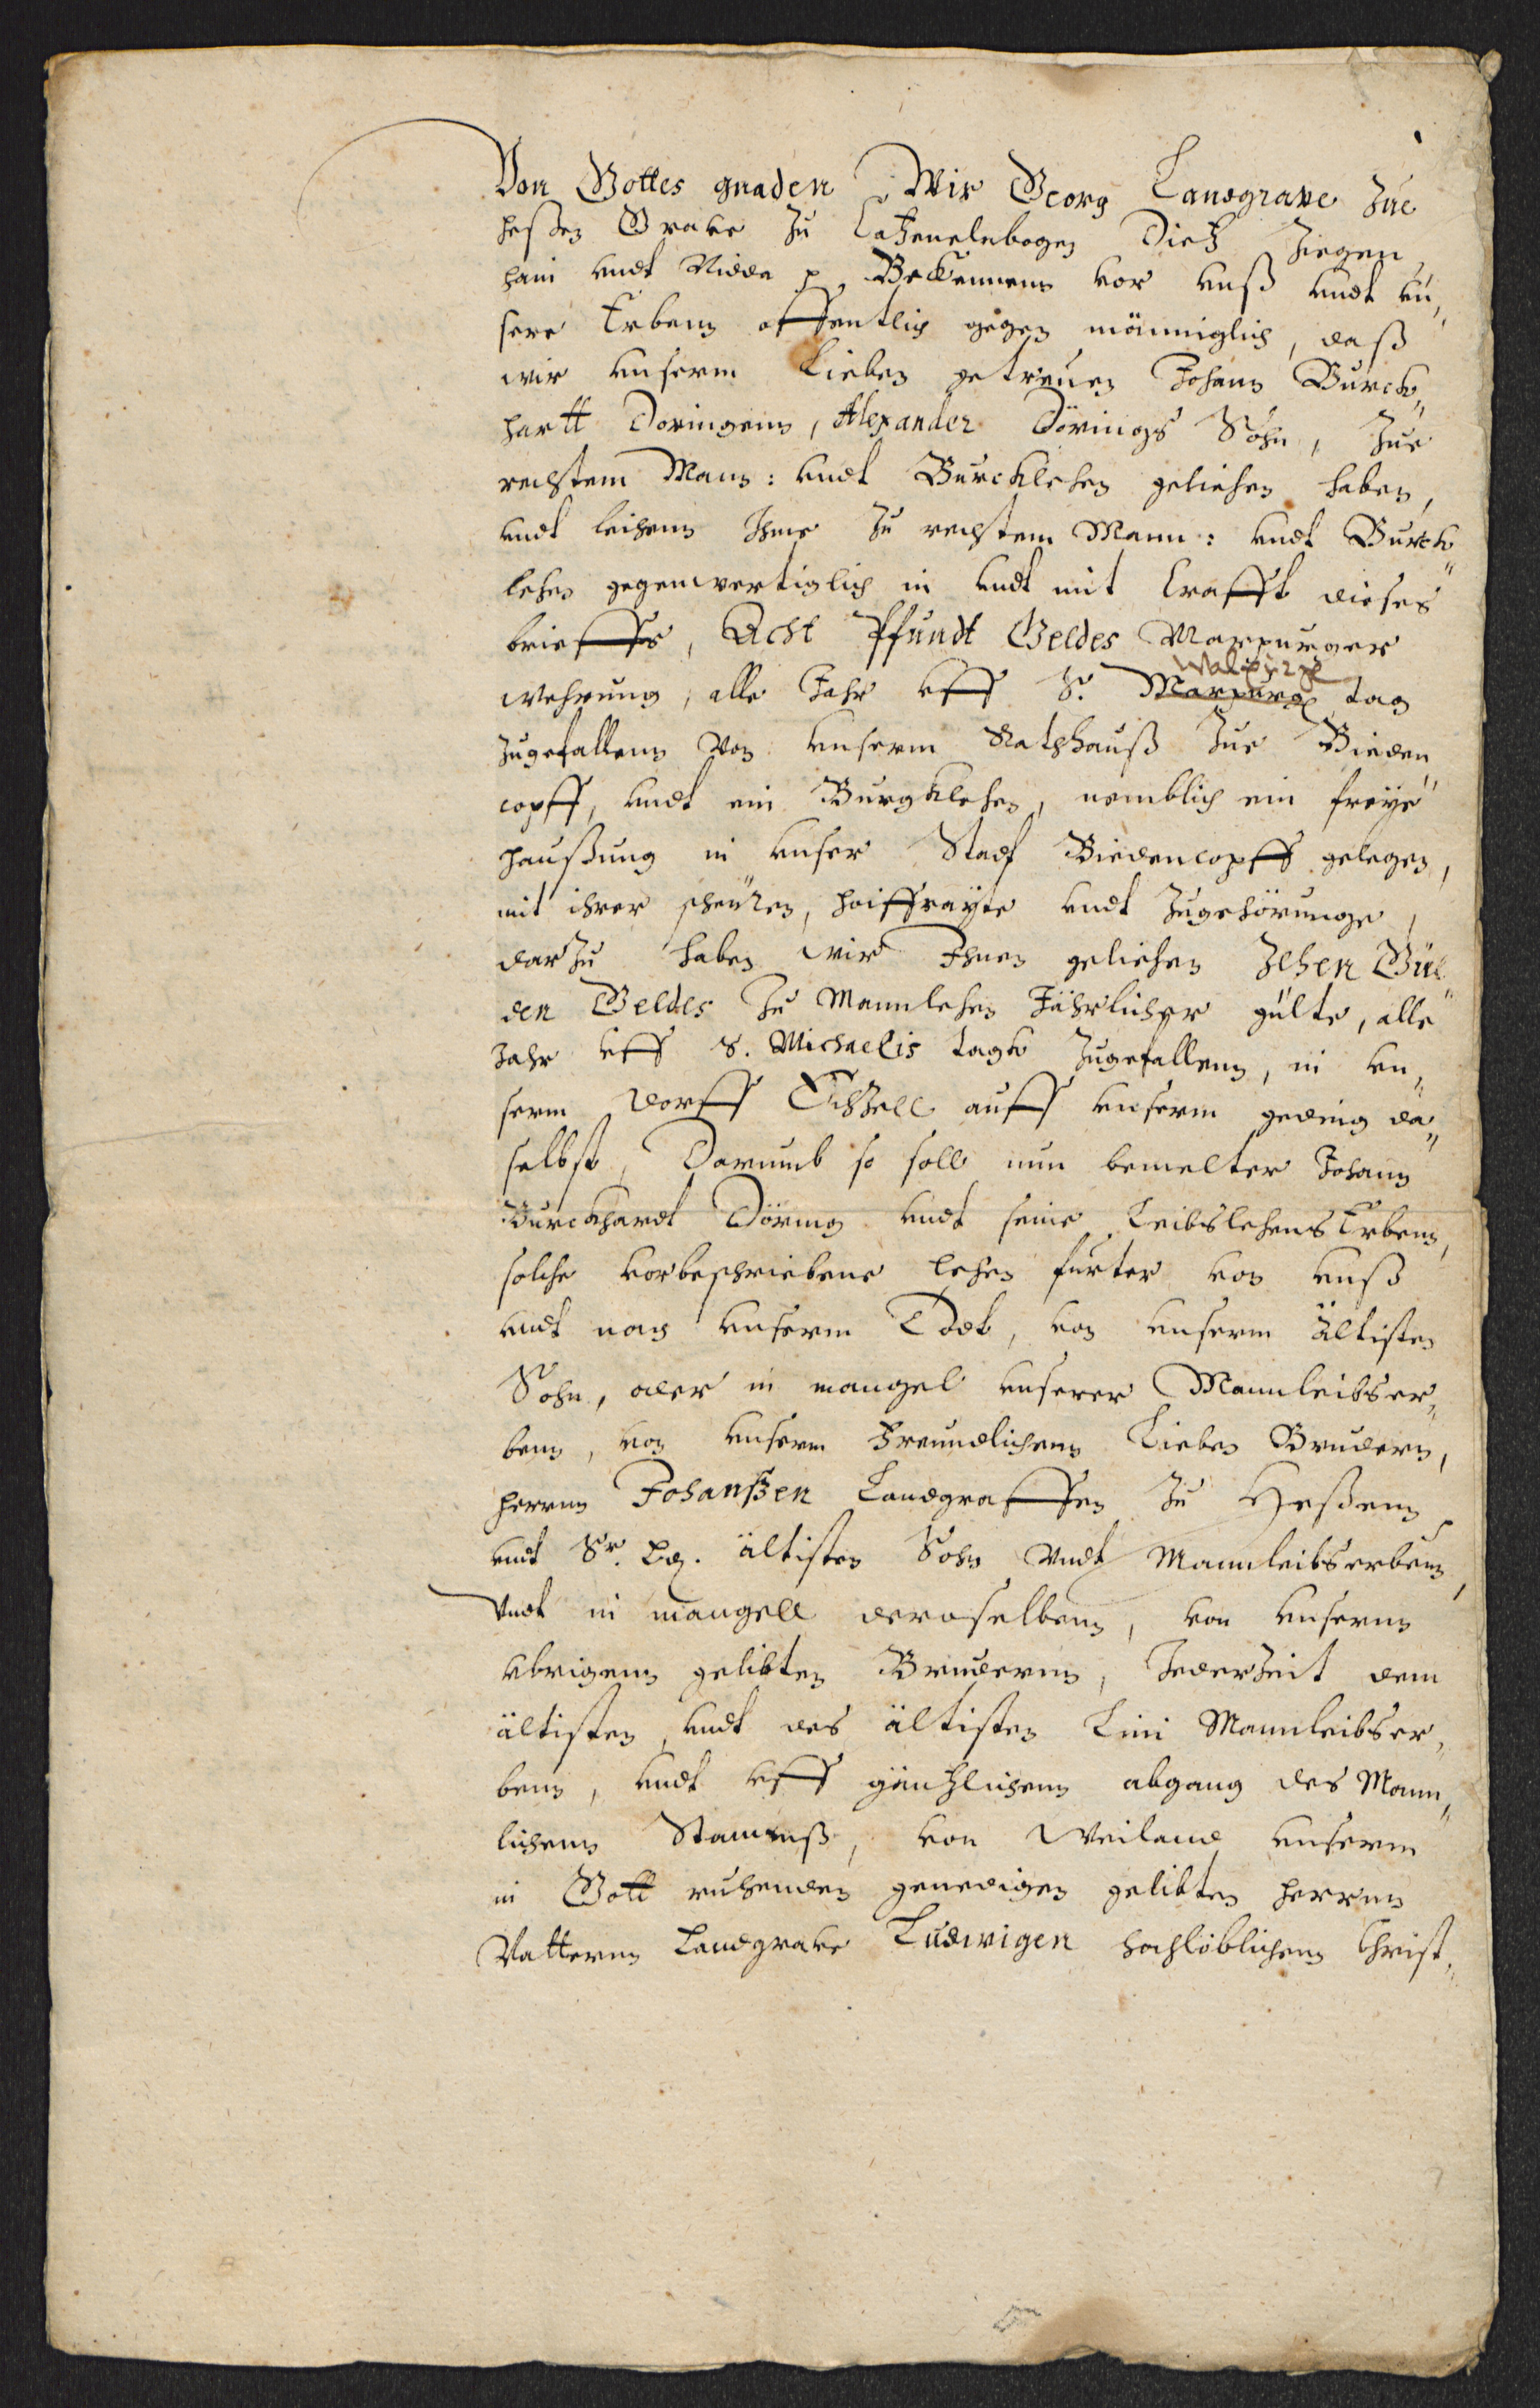 Von Gottes gnaden Wir Georg Landgrave Zue
Heßen Grave Zu Catzenelnbogen Dietz Ziegen„
hain undt Nidda p. Bekennenn vor unß undt un„
sere Erbenn offentlich gegen männiglich, daß
wir unserm Lieben getreuen Johann Burck„
hartt Doringenn, Alexander Dörings Sohn, Zue
rechtem Mann: undt Burcklehen geliehen haben,
undt leihenn Ihme Zu rechtem Mann: undt Burck„
lehen gegenwertiglich in undt mit Crafft dieses
brieffs, Acht Pfundt Geldes Marpurger
Walpurg
wehrung, alle Jahr uff S. Marpurg tag
Zugefallenn Von unserm Rathhauß Zue Bieden
copff, undt ein Burgklehen, nemblich ein freye
Haußung in unser Stadt Biedencopff gelegen,
mit ihrer scheuren, hoiffrayte undt Zugehörunge,
darZu haben wir Ihnen geliehen Zehen Gül„
den Geldes Zu Mannlehen Jährlicher gülte, alle
Jahr uff S. Michaelis tagk Zugefallenn, in un„
serm Dorff Echzell auff unserm geding da„
selbst, Darumb so soll nun bemelter Johann
Burckhardt Döring undt seine LeibslehensErbenn,
solche vorbeschriebene lehen furter von unß
undt nach unserm Todt, von unserm ältisten
Sohn, oder in mangel unserer Mannleibser„
benn, von unserm Freundlichenn Lieben Brudern,
Herrnn Johanßen Landgraffen Zu Heßenn
undt Sr. Ld. ältisten Sohn Undt Mannleibserbenn,
Undt in mangell deroselbenn, von unsernn
ubrigenn gelibten Brudernn, JederZeit dem
ältisten, undt des ältisten Lini Mannleibser„
benn, undt uff gäntzlichenn abgang des Mann„
lichenn Stammß, von Weiland unserm
in Gott ruhenden genedigen gelibten Herrnn
Vatternn Landgrave Ludwigen hochlöblichenn Christ„